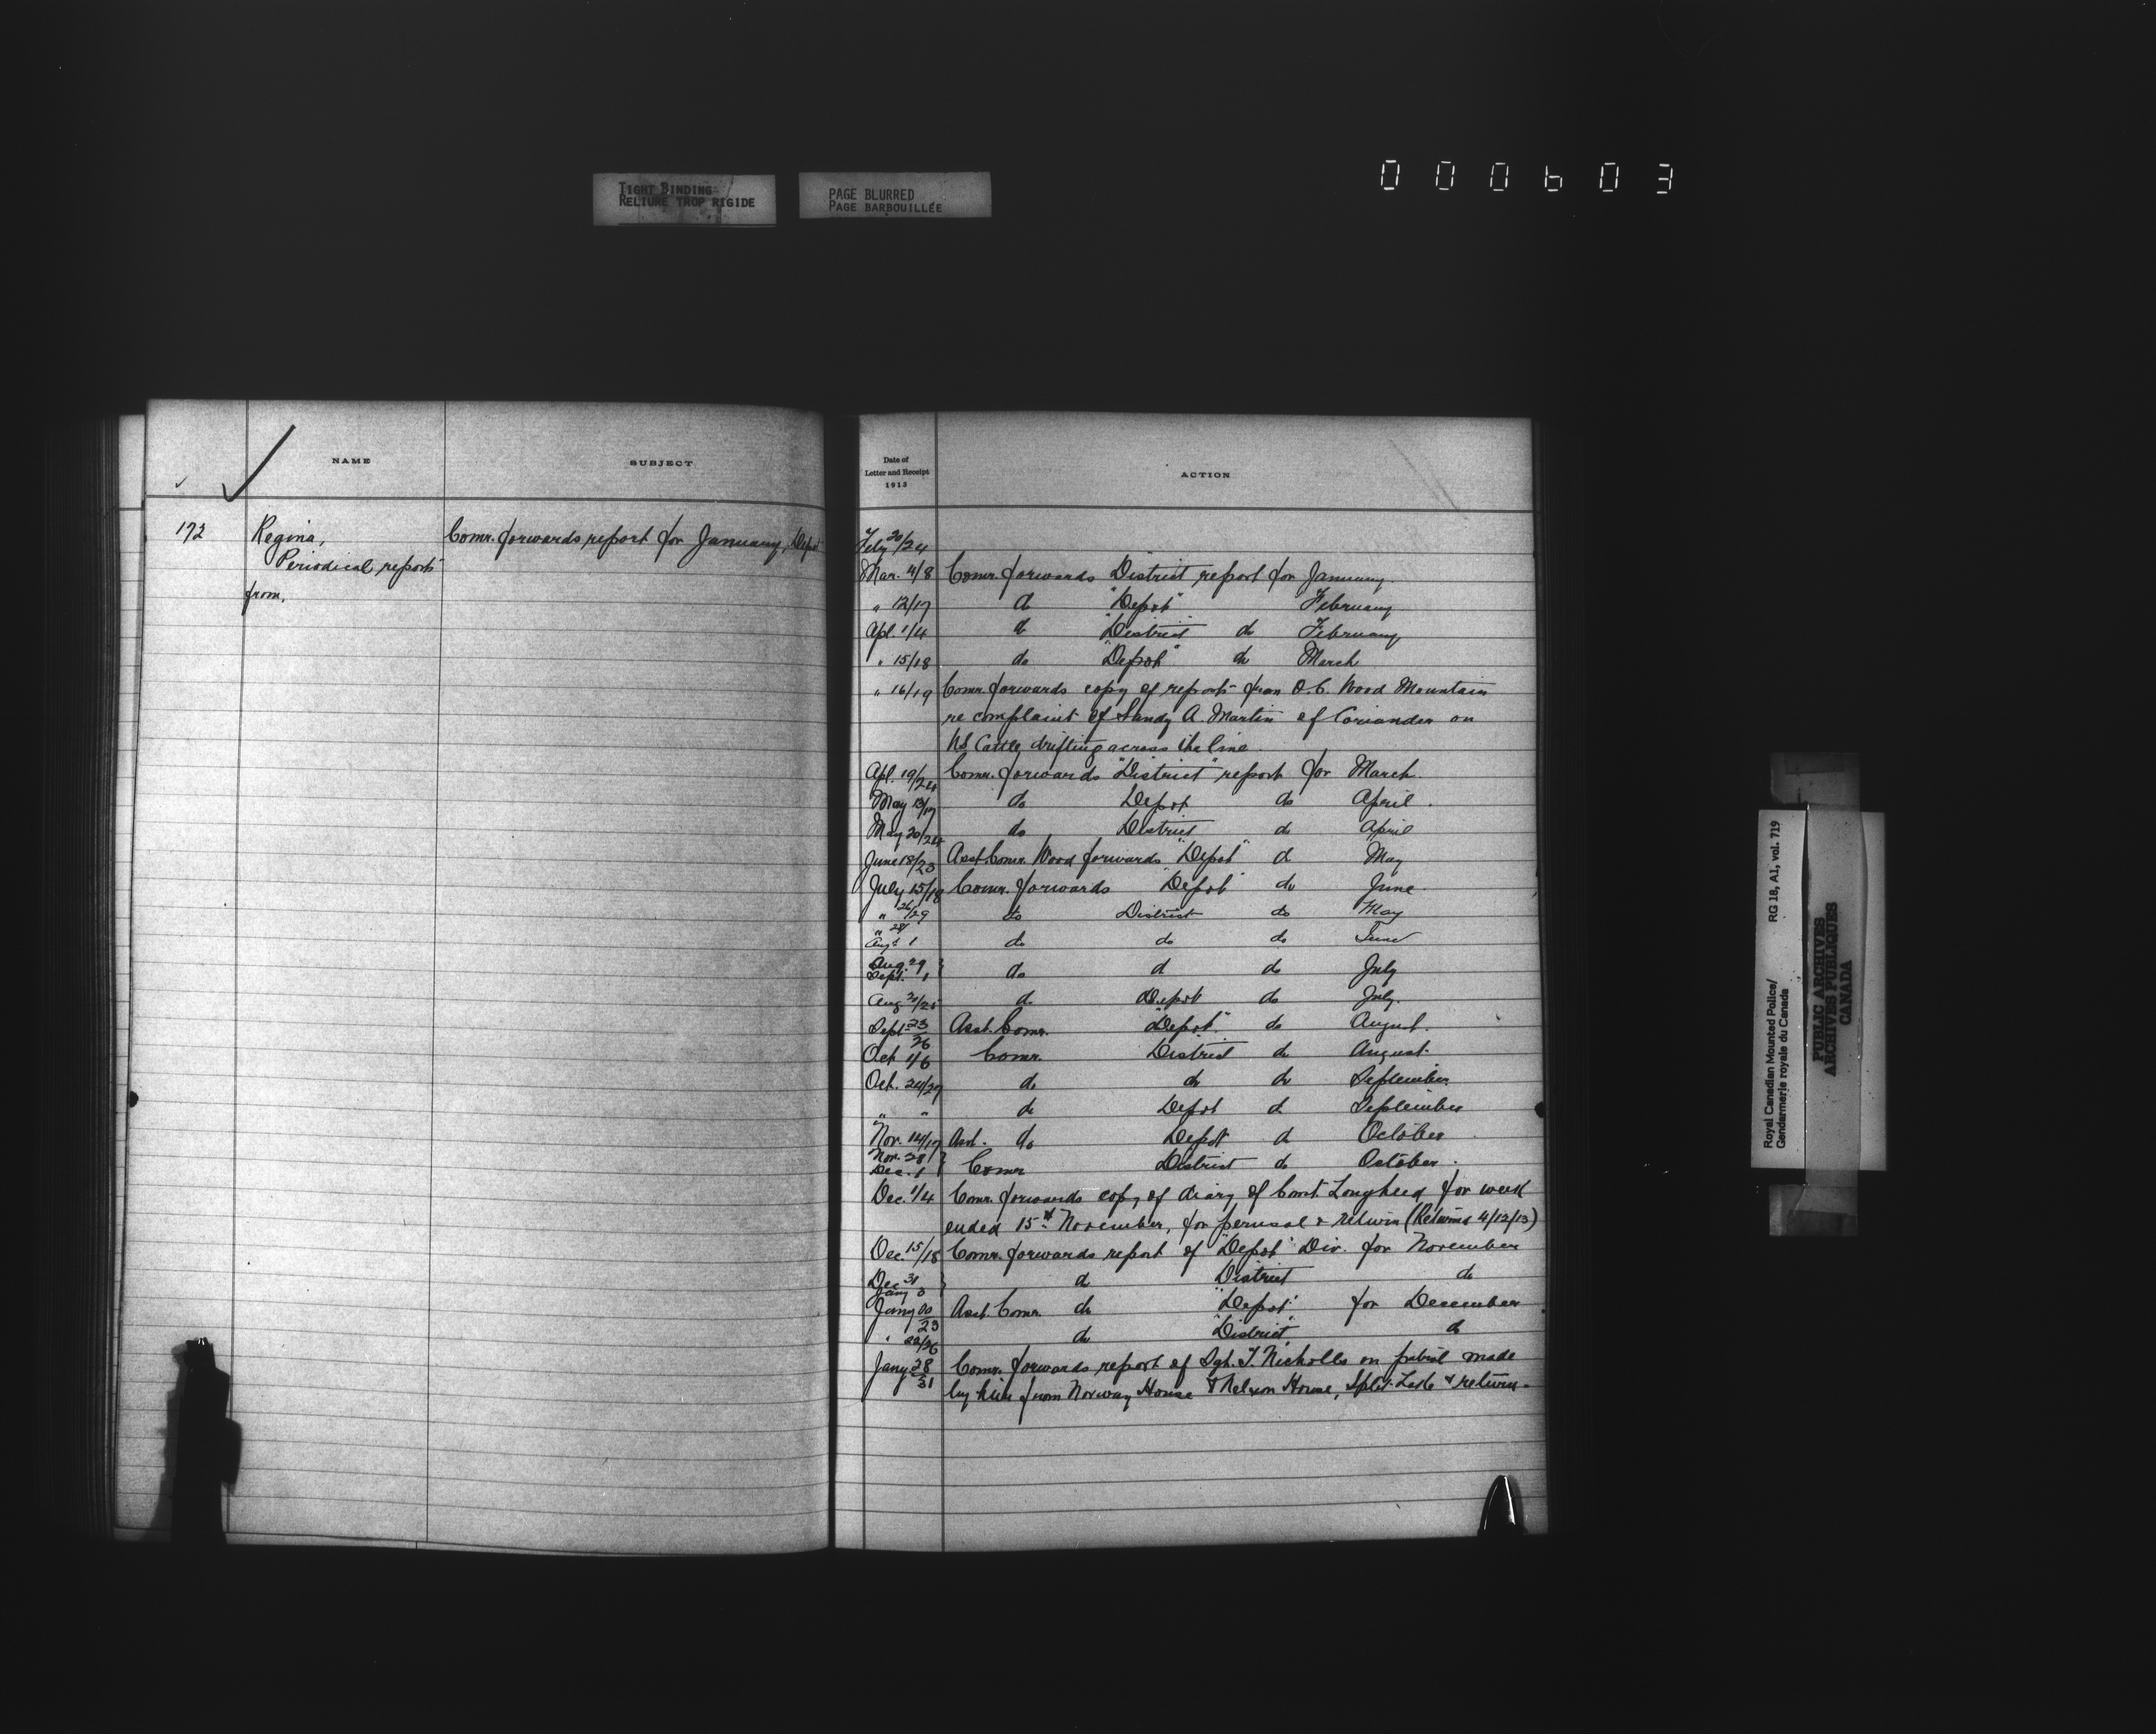 TIGHT BINDING
RELIURE TROP RIGIDE
PAGE BLURRED
PAGE BARBOUILLÉE
000603
NAME
SUBJECT
172
Regina,
Periodical reports
from.
Comr. forwards report for January, Depot
Date of
Letter and Receipt
1913
ACTION
Feby 20/24
Mar. 4/8 Comr. forwards District report for January.
" 12/17 do "Depot" February
Apl. 1/4 do "District" do February
" 15/18 do "Depot" do March
" 16/19 Comr. forwards copy of report from O.C. Wood Mountain
re complaint of Sandy A. Martin of Coriander on
US Cattle drifting across the line.
Apl. 19/24 Comr. forwards "District" report for March.
May 13/17 do Depot do April.
May 20/24 do District do April
June 18/23 Asst. Comr. Wood forwards "Depot" do May
July 15/18 Comr. forwards "Depot" do June
" 26/29 do District do May
" 28/
Augt 1 do do do June
Aug. 29
Sept. 1 do do do July
Aug. 20/25 do Depot do July.
Sept 23/26 Asst. Comr. "Depot" do August.
Oct 1/6 Comr. District do August.
Oct. 24/27 do do do September
" " do Depot do September
Nov. 14/17 Asst. do Depot do October
Nov. 28
Dec. 1 Comr District do October.
Dec. 1/4 Comr. forwards copy of diary of Const. Lougheed for week
ended 15th November, for perusal & return (Returned 4/12/13)
Dec. 15/18 Comr. forwards report of "Depot" Div. for November
Dec 31
Jany 3 do District do
Jany 20/23 Asst. Comr. do "Depot" for December
" 22/26 do "District" do
Jany 28/31 Comr. forwards report of Sgt. T. Nicholls on patrol made
by him from Norway House to Nelson House, Split Lake & return.
Royal Canadian Mounted Police/
Gendarmerie royale du Canada
RG 18, A1, vol. 719
PUBLIC ARCHIVES
ARCHIVES PUBLIQUES
CANADA